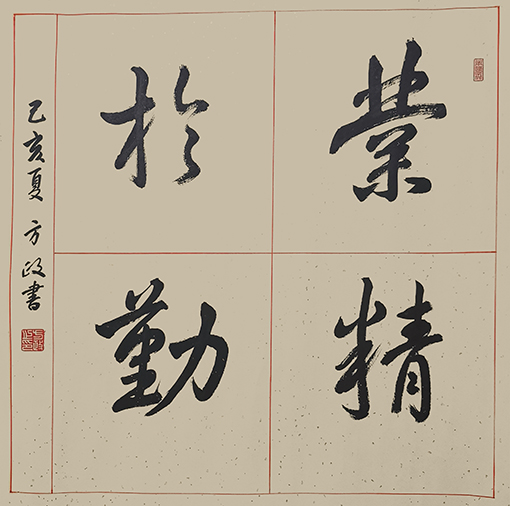 業精
於勤
乙亥夏 方政書